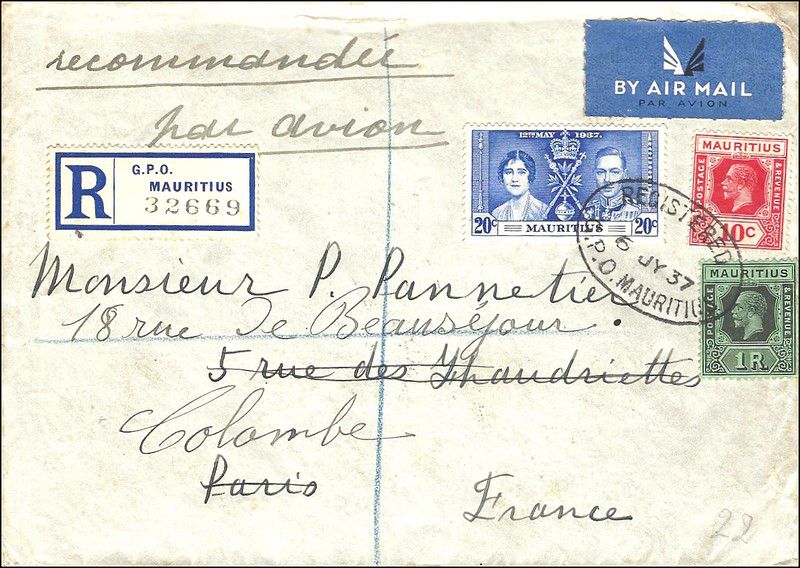 recommandée
par avion
BY AIR MAIL
PAR AVION
R
G.P.O.
MAURITIUS
32669
12TH MAY 1937.
20c MAURITIUS 20c
MAURITIUS
POSTAGE & REVENUE
10c
REGISTERED
6 JY 37
G.P.O. MAURITIUS
MAURITIUS
POSTAGE & REVENUE
1R.
Monsieur P. Pannetier
18 rue de Beauséjour.
5 rue des Haudriettes
Colombe
Paris
France
22